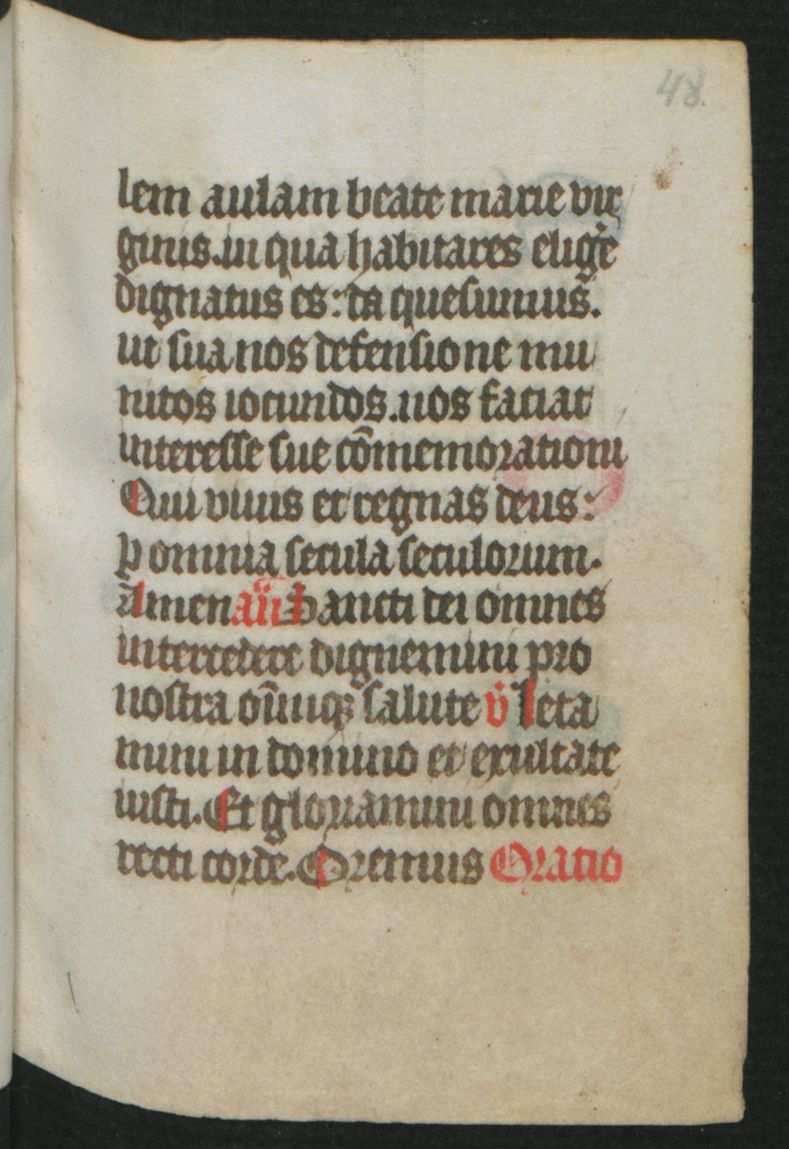 48.
lem aulam beate marie vir
ginis. in qua habitares elig̾e
dignatus es: da quesumus̄.
ut sua nos defensione mu
nitos iocundos. nos faciat
interesse sue cōmemorationi
Qui vivis et regnas deus:
ꝑ omnia secula seculorum.
Amen an̄ Sancti dei omnes
intercedere dignemini pro
nostra om̄iuqꝫ salute v̇ leta
mini in domino et exultate
iusti. Et gloriamini omnes
recti corde. Oremus Oratio